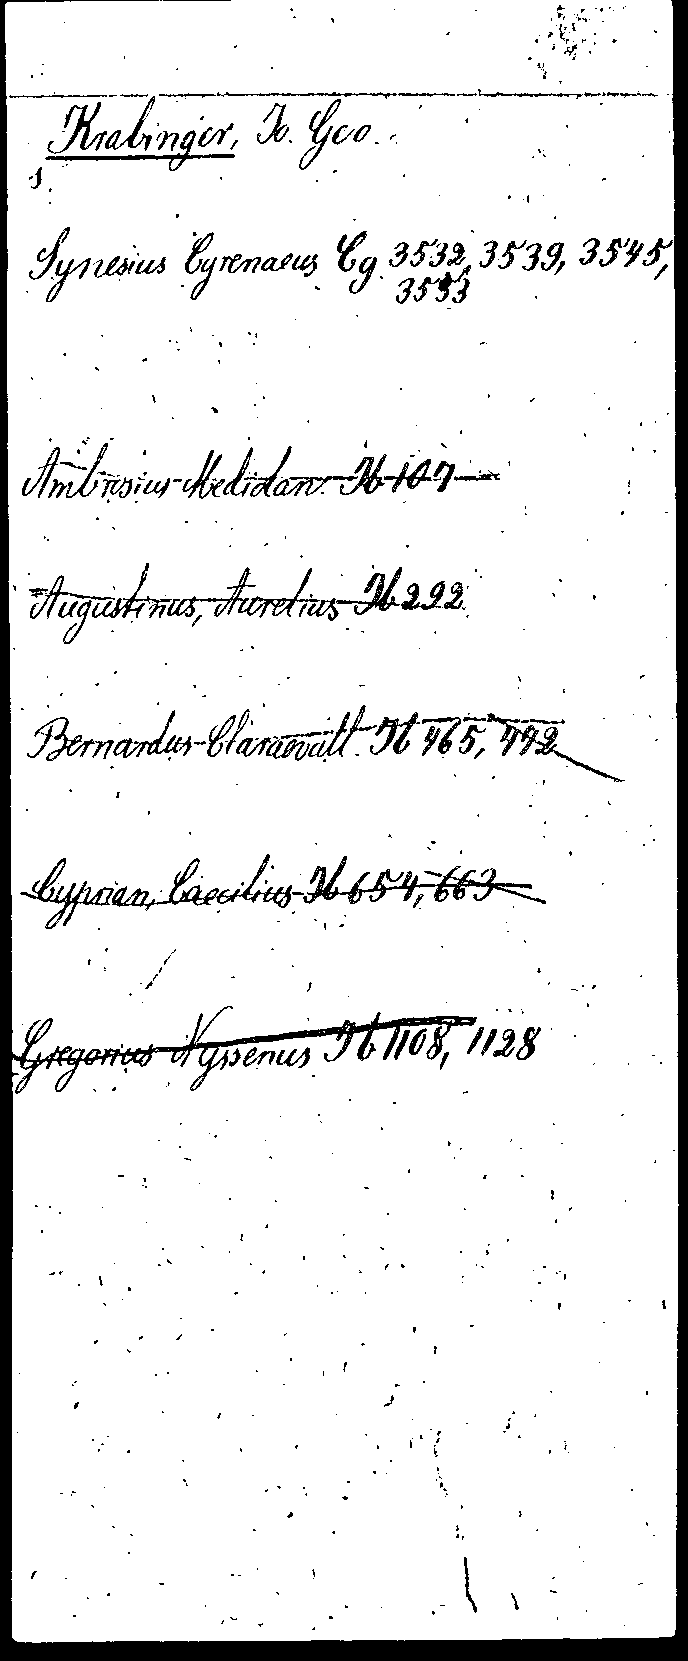 Krabinger, Jo. Geo.
s.
Synesius Cyrenaeus Cg 3532, 3539, 3545,
3533
Ambrosius Mediolan. Ib 107
Augustinus, Aurelius Ib 292
Bernardus Claraevall. Ib 465, 442
Cyprian, Caecilius Ib 654, 663
Gregorius Nyssenus Ib 1108, 1128